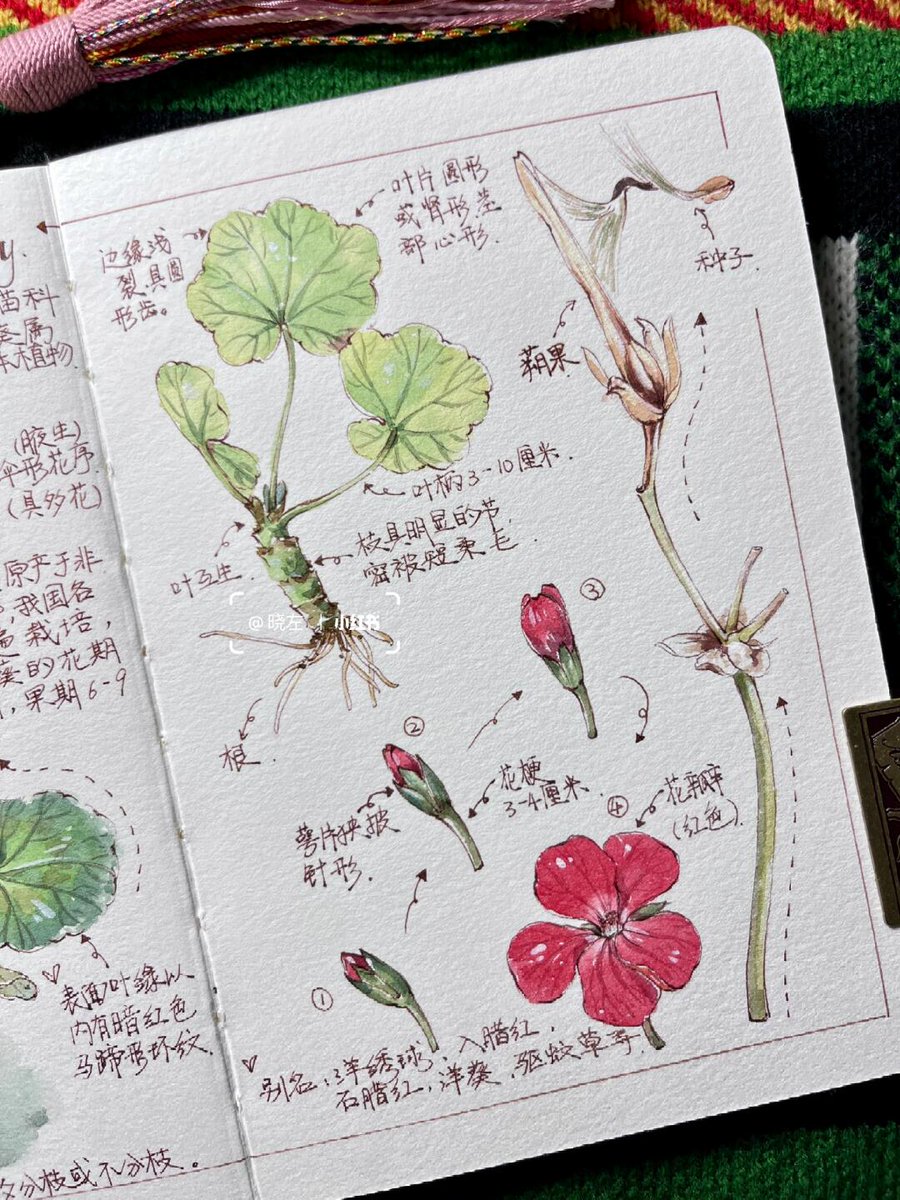 y.
苗科
葵属
本植物
(腋生)
伞形花序
(具多花)
原产于非
,我国各
遍栽培,
葵的花期
,果期6-9
表面叶缘以
内有暗红色
马蹄形环纹.
分枝或不分枝。
边缘浅
裂,具圆
形齿。
叶片圆形
或肾形茎
部心形.
种子.
蒴果.
叶柄3-10厘米.
枝具明显的节
密被短柔毛.
叶互生.
@晓左
小红书
根.
③
②
花梗
3-4厘米.
萼片狭披
针形.
④
花瓣
(红色).
①
别名:洋绣球,入腊红,
石腊红,洋葵,驱蚊草等.